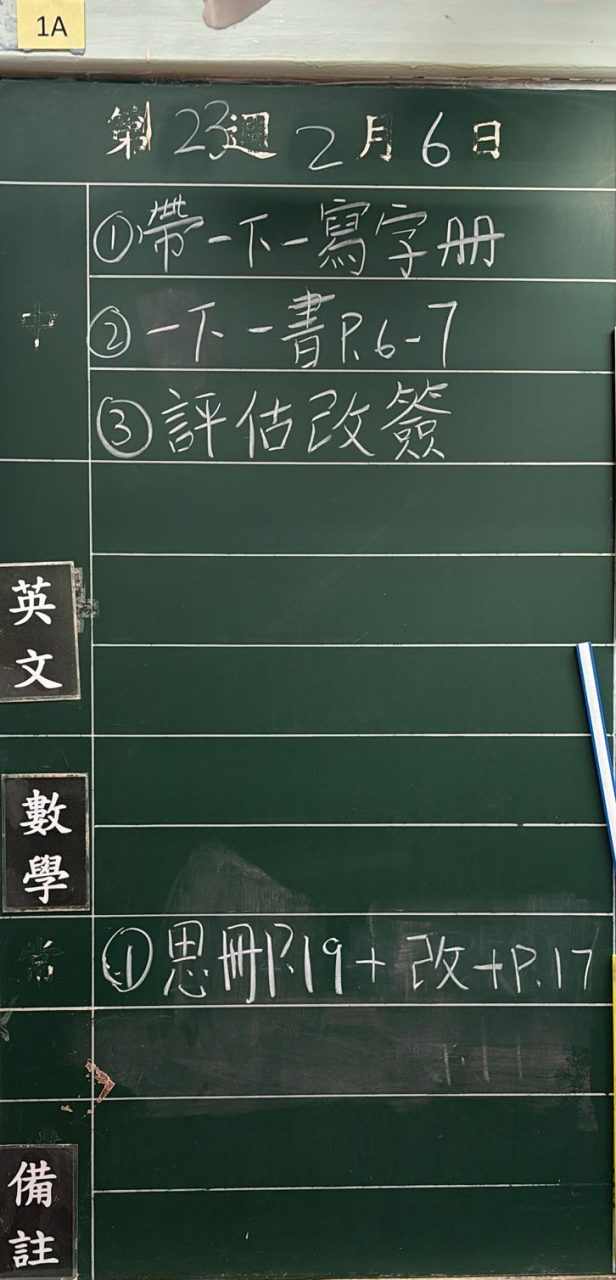 1A
第23週 2月6日
中
①帶一下一寫字册
②一下一書P.6-7
③評估改簽
英文
數學
常
①思冊P.19+改+P.17
備註